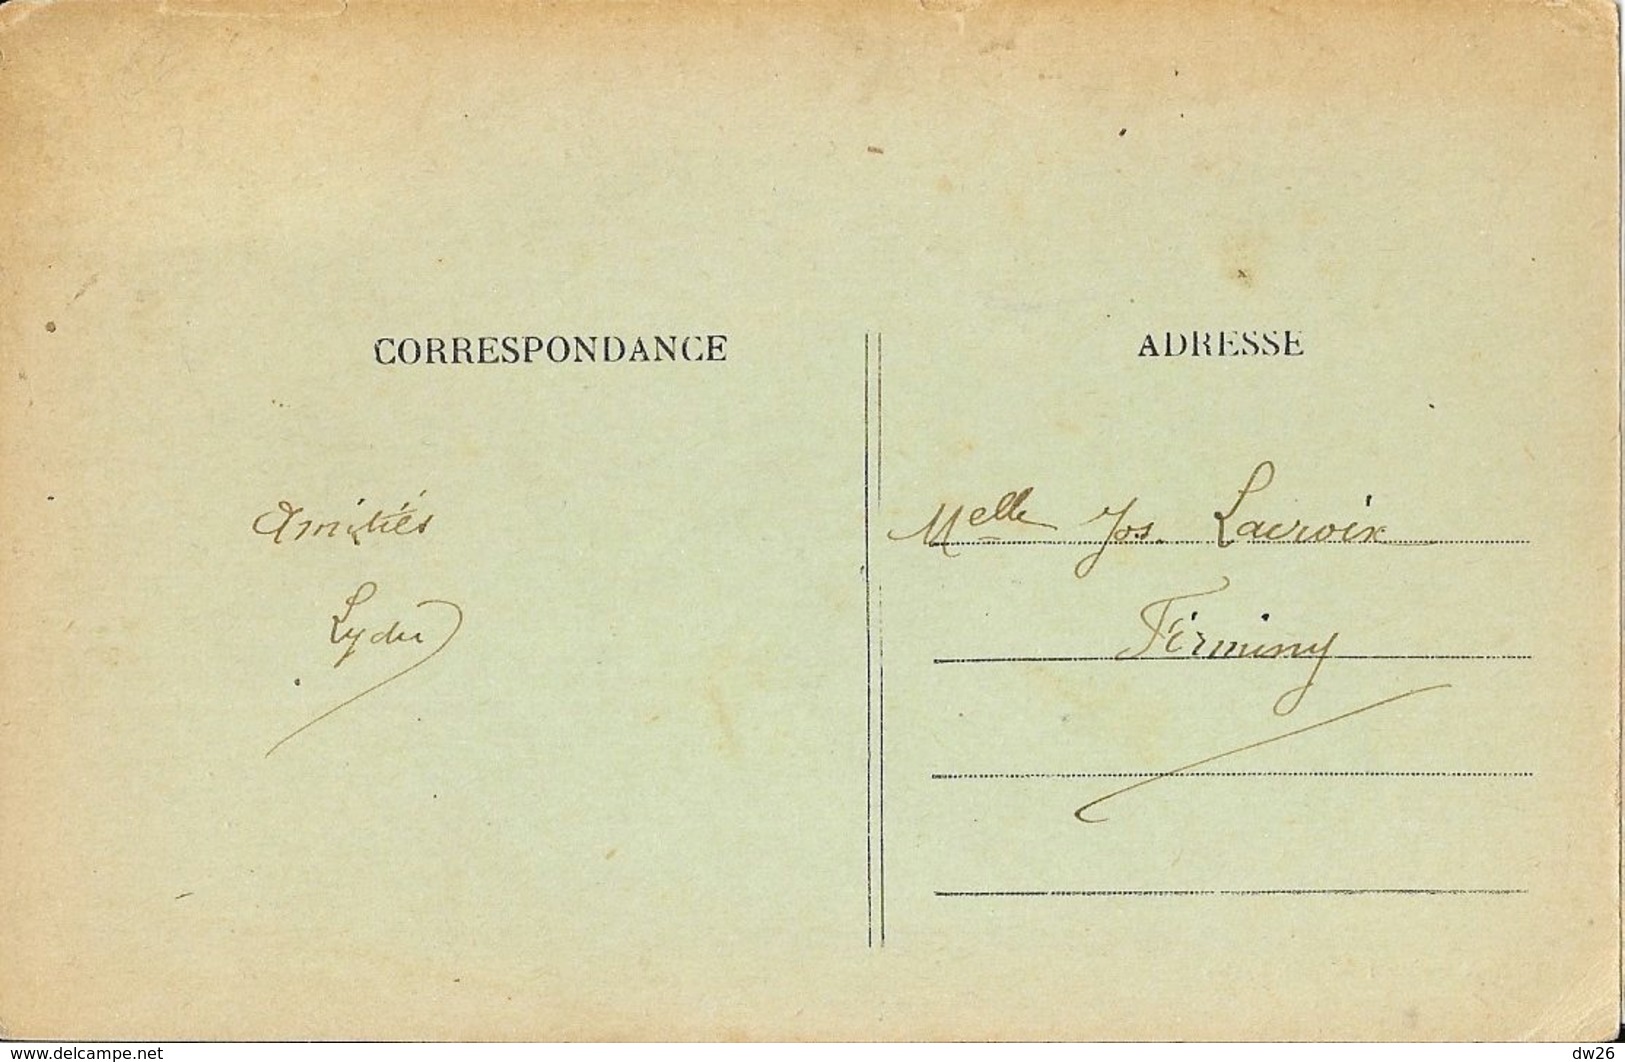 CORRESPONDANCE
Amitiés
Lydie
ADRESSE
Melle Jos. Lacroix
Firminy
www.delcampe.net
dw26